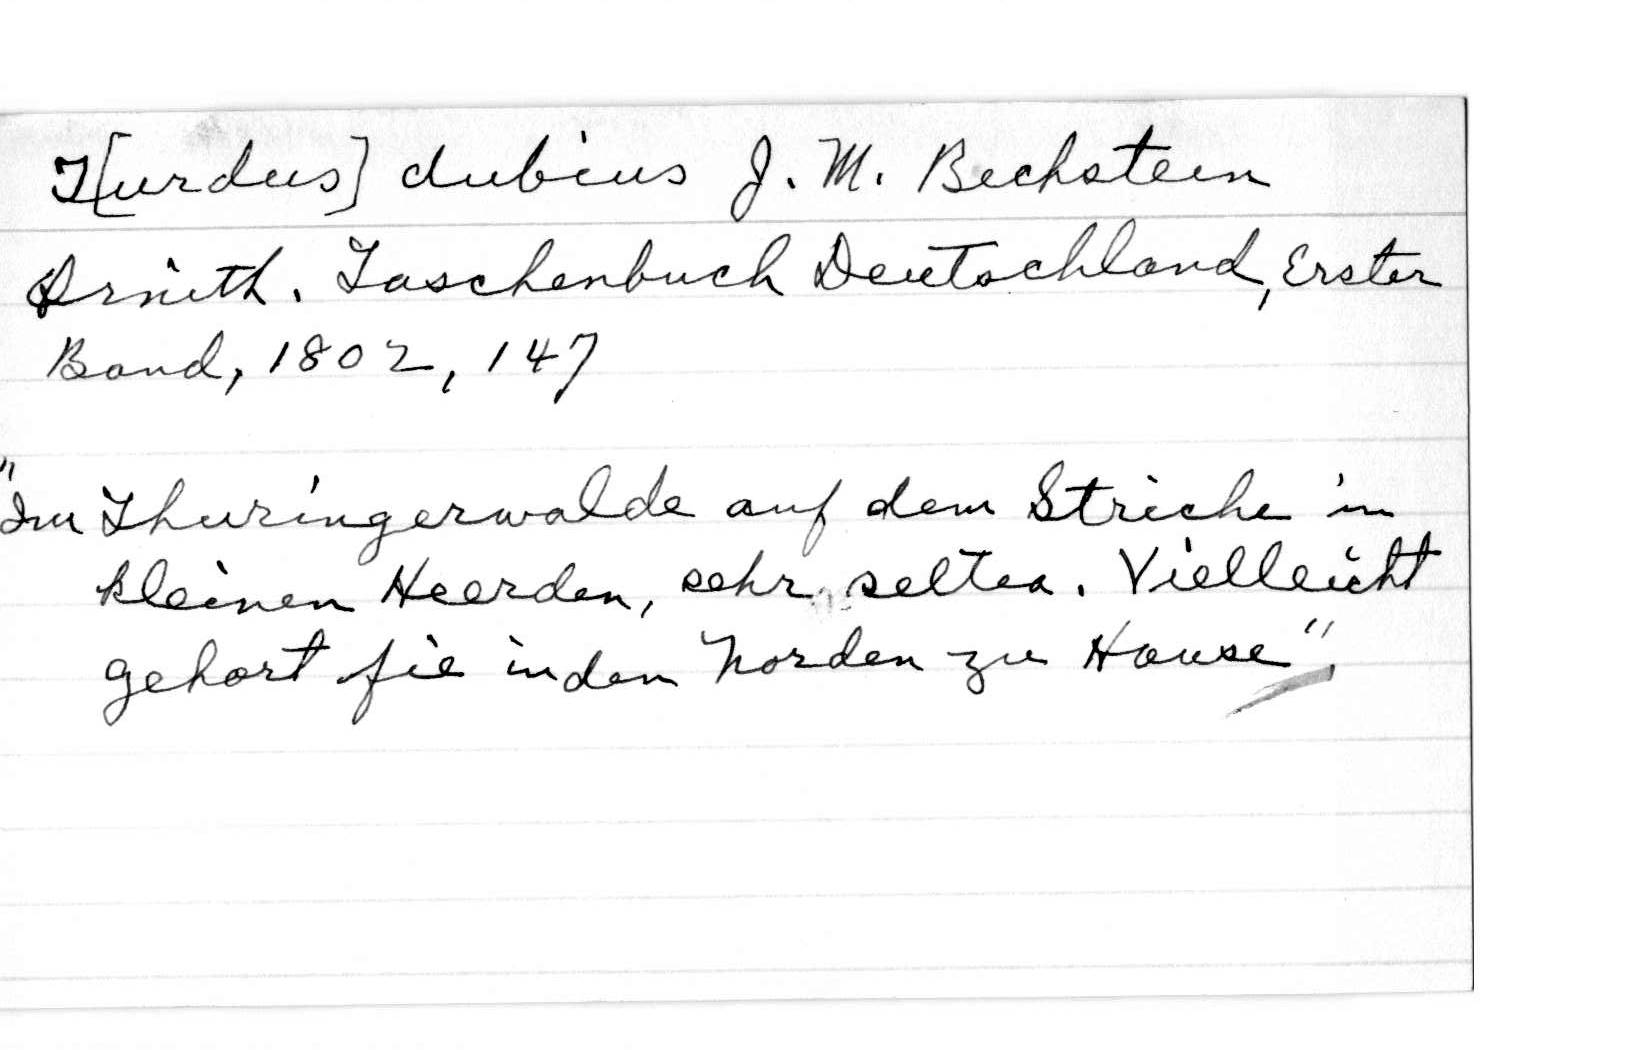 T[urdus] dubius J. M. Bechstein
Ornith. Taschenbuch Deutschland, Erster
Band, 1802, 147
"Im Thuringerwalde auf dem Striche in
kleinen Heerden, sehr selten. Vielleicht
gehort fie in den Norden zu Hause".